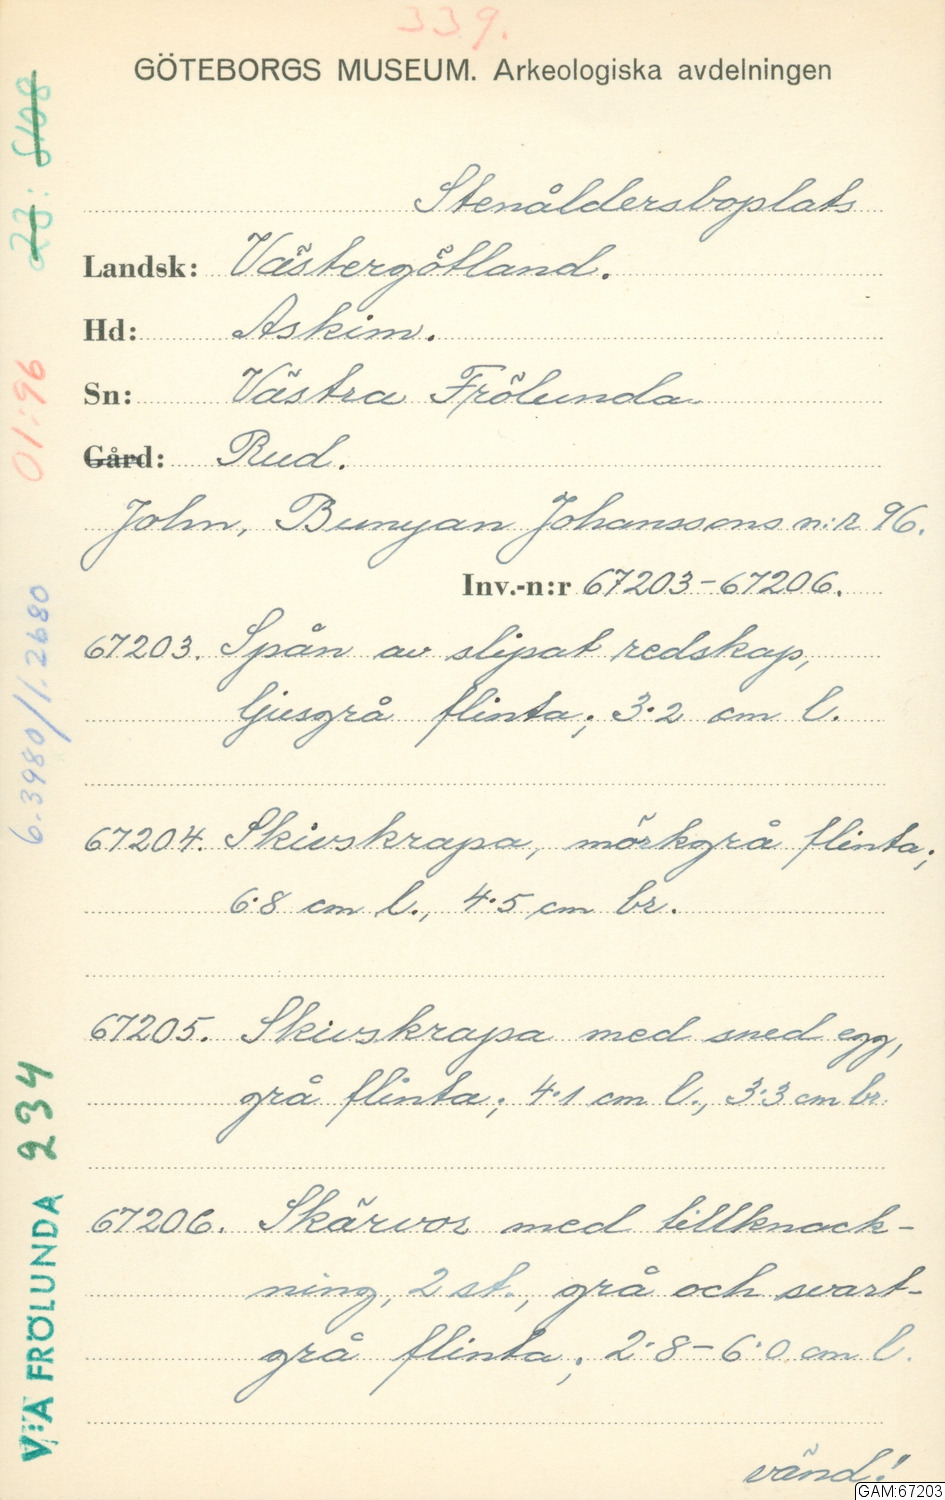 339.
GÖTEBORGS MUSEUM. Arkeologiska avdelningen
Stenåldersboplats
Landsk: Västergötland.
Hd: Askim.
Sn: Västra Frölunda.
Gård: Rud.
John, Bunyan Johanssons n:r 96.
Inv.-n:r 67203-67206.
67203. Spån av slipat redskap,
ljusgrå flinta; 3·2 cm l.
67204. Skivskrapa, mörkgrå flinta;
6·8 cm l., 4·5 cm br.
67205. Skivskrapa med sned egg,
grå flinta; 4·1 cm l., 3·3 cm br.
67206. Skärvor med tillknack-
ning, 2 st., grå och svart-
grå flinta; 2·8-6·0 cm l.
vänd!
V:A FRÖLUNDA 234
6.3980/1.2680
01:96
23:
GAM:67203